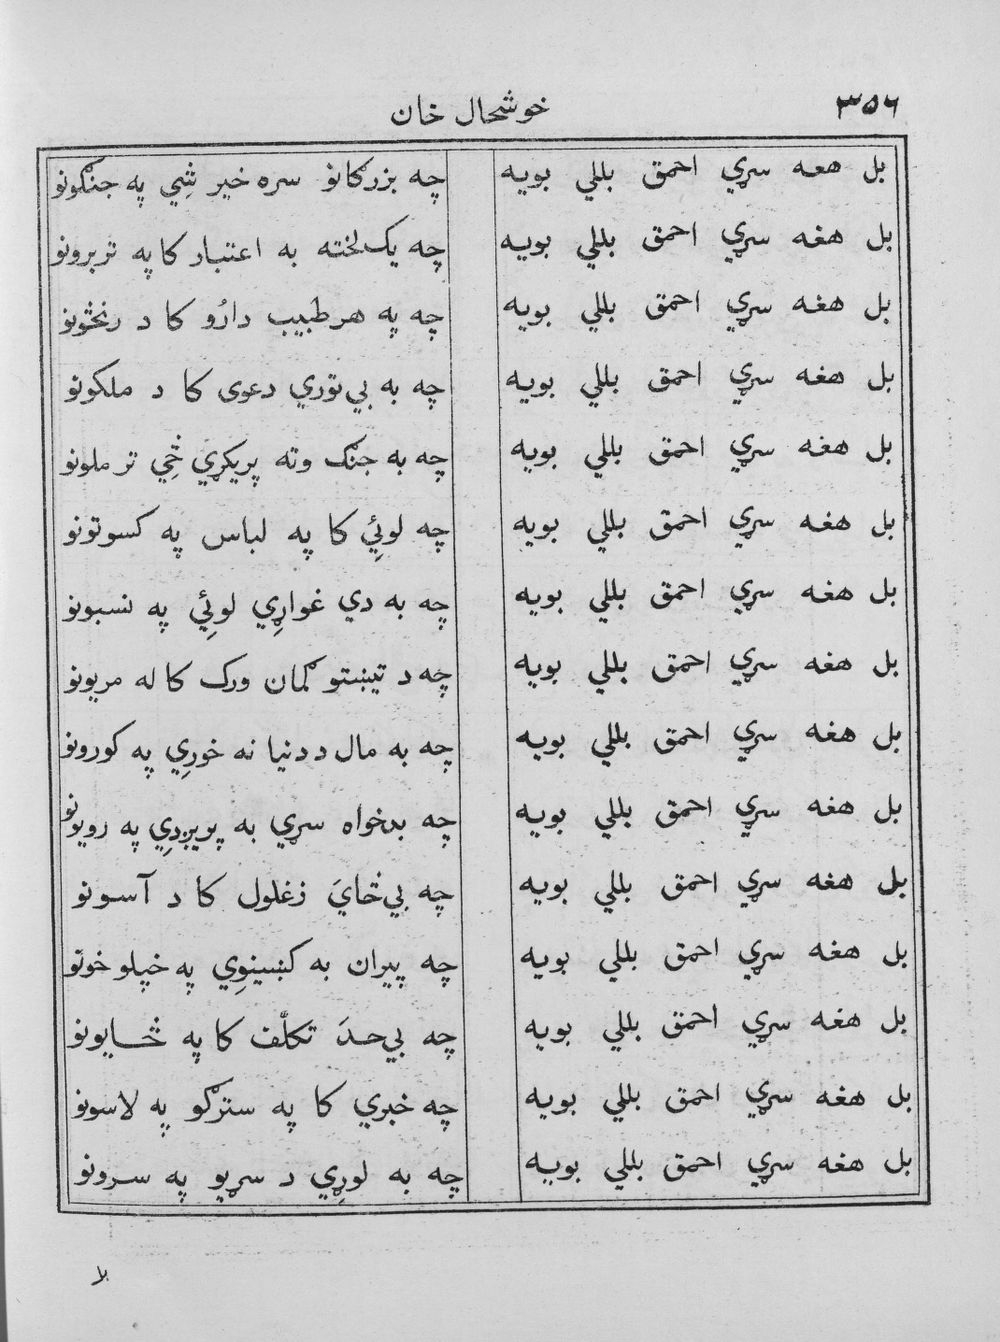 ٣٥٦ خوشحال خان
بل هغه سړي احمق بللي بويه چه بزرکانو سره خير شِي په جنګونو
بل هغه سړي احمق بللي بويه چه يک لخته به اعتبار کا په تربرونو
بل هغه سړي احمق بللي بويه چه په هر طبيب دارُو کا د رنځونو
بل هغه سړي احمق بللي بويه چه به بي توري دعوی کا د ملکونو
بل هغه سړي احمق بللي بويه چه به جنګ وته پريکړي ځِي تر ملونو
بل هغه سړي احمق بللي بويه چه لوئِي کا په لباس په کسوتونو
بل هغه سړي احمق بللي بويه چه به دي غواړِي لوئِي په نسبونو
بل هغه سړي احمق بللي بويه چه د تيښتو ګمان ورک کا له مريونو
بل هغه سړي احمق بللي بويه چه به مال د دنيا نه خورِي په کورونو
بل هغه سړي احمق بللي بويه چه بدخواه سړي به پريږدِي په رويونو
بل هغه سړي احمق بللي بويه چه بي ځايَ زغلول کا د آسونو
بل هغه سړي احمق بللي بويه چه پيران به کښينوِي په خپلو خونو
بل هغه سړي احمق بللي بويه چه بي حدَ تکلّف کا په ځايونو
بل هغه سړي احمق بللي بويه چه خبري کا په سترګو په لاسونو
بل هغه سړي احمق بللي بويه چه به لوړِي د سړيو په سرونو